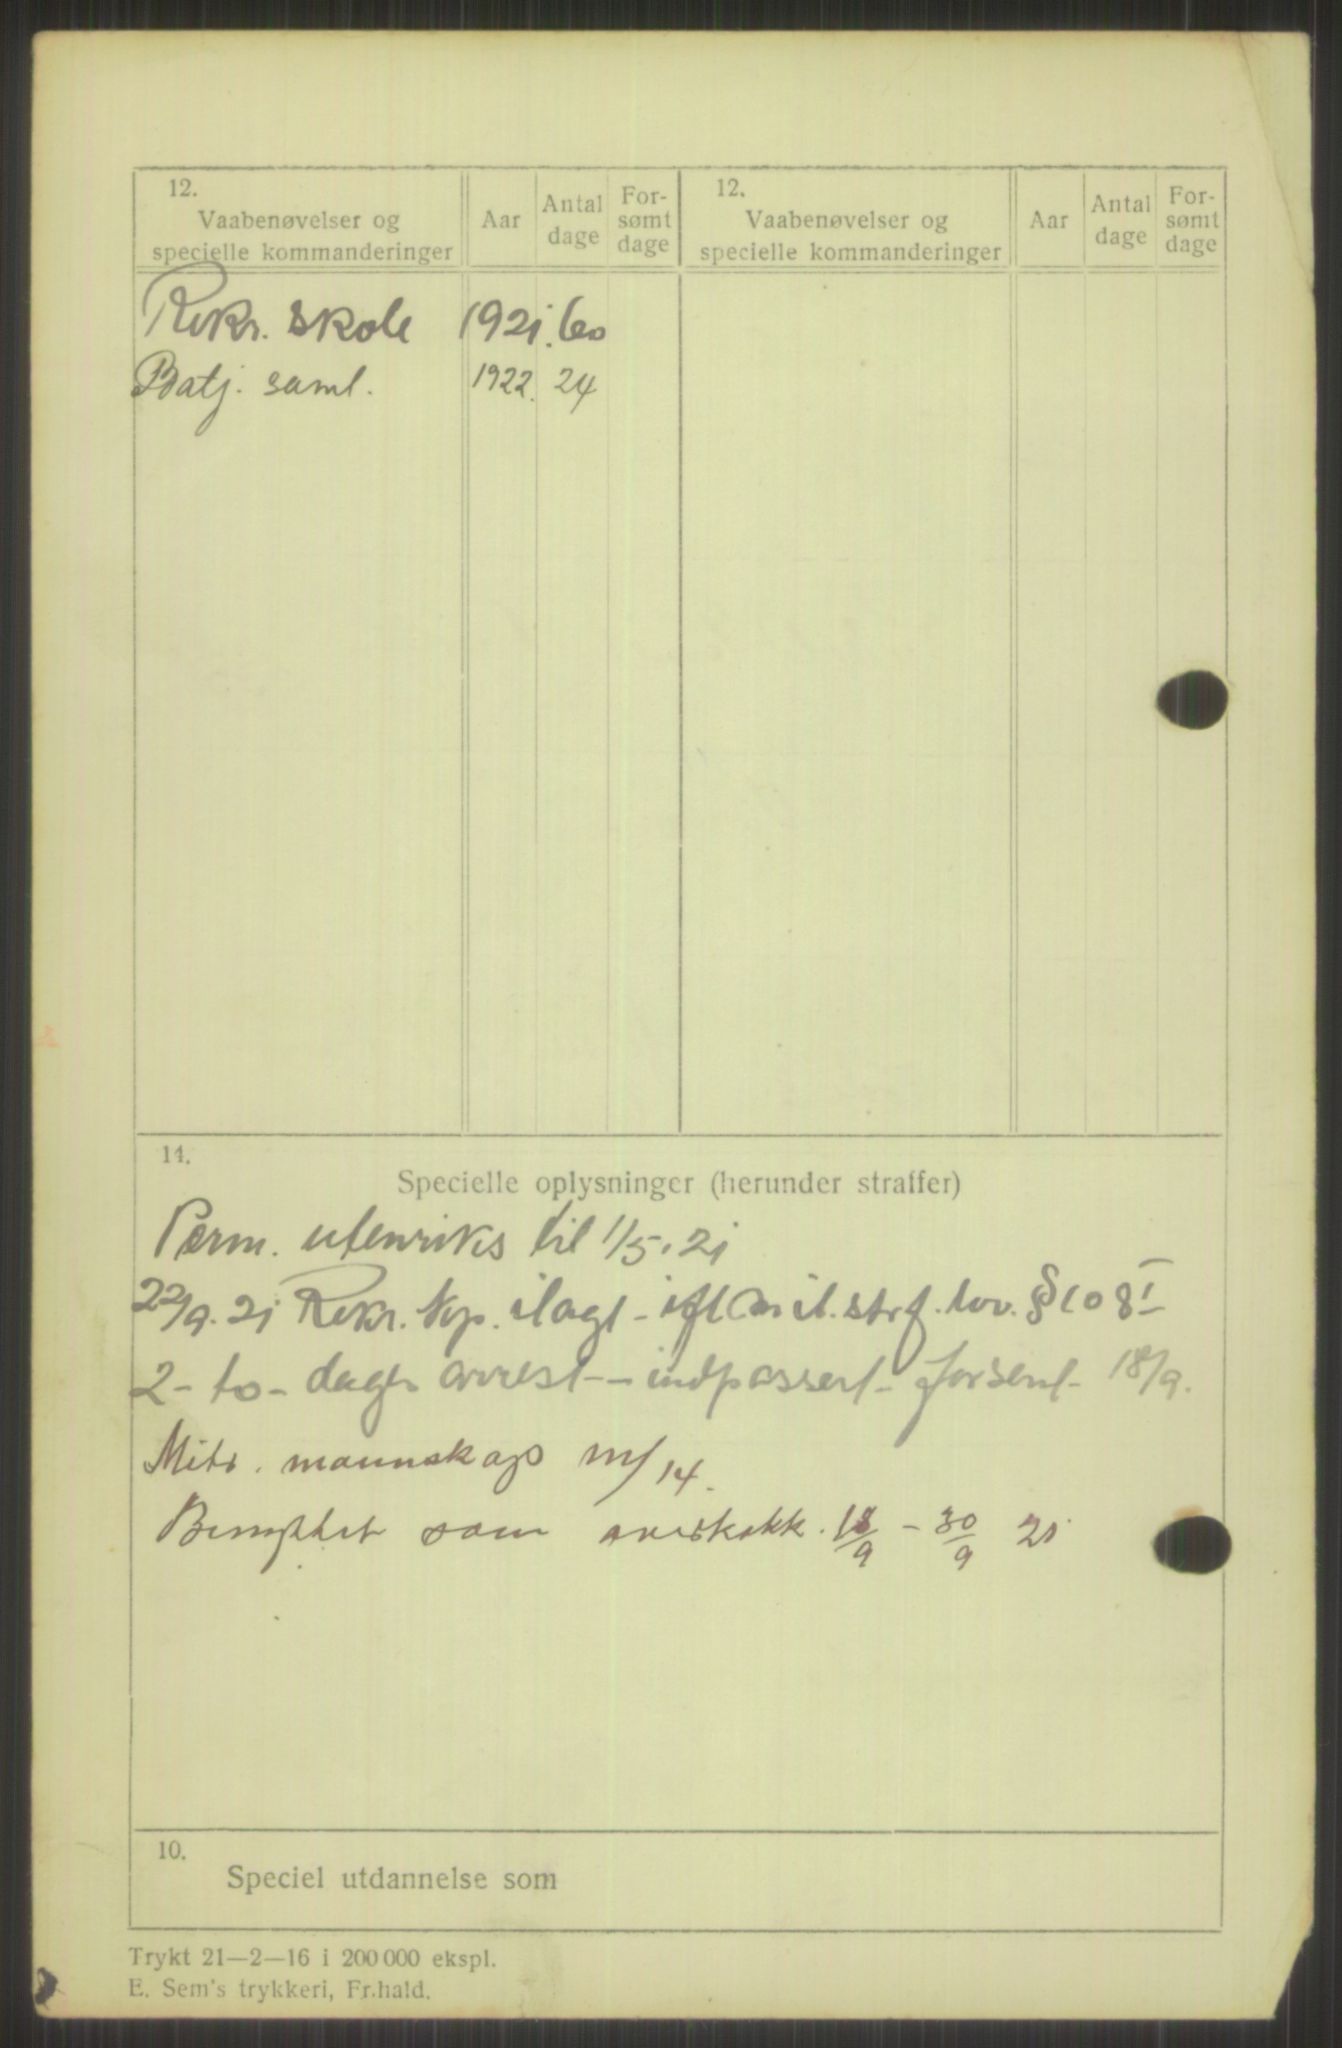 12.
Vaabenøvelser og
specielle kommanderinger
Aar
Antal
dage
For-
sømt
dage
12.
Vaabenøvelser og
specielle kommanderinger
Aar
Antal
dage
For-
sømt
dage
Rekr. skole 1921. 60
Batj. saml. 1922. 24
14.
Specielle oplysninger (herunder straffer)
Perm. utenriks til 1/5.21
22/9.21 Rekr. kp. ilagt - ifl mil. strf. lov. § 108 I
2 - to - dages arrest - indpassert - forsent - 18/9.
Mitr. mannskap m/14.
Benyttet som overkokk. 18/9 - 30/9 21
10.
Speciel utdannelse som
Trykt 21—2—16 i 200 000 ekspl.
E. Sem's trykkeri, Fr.hald.